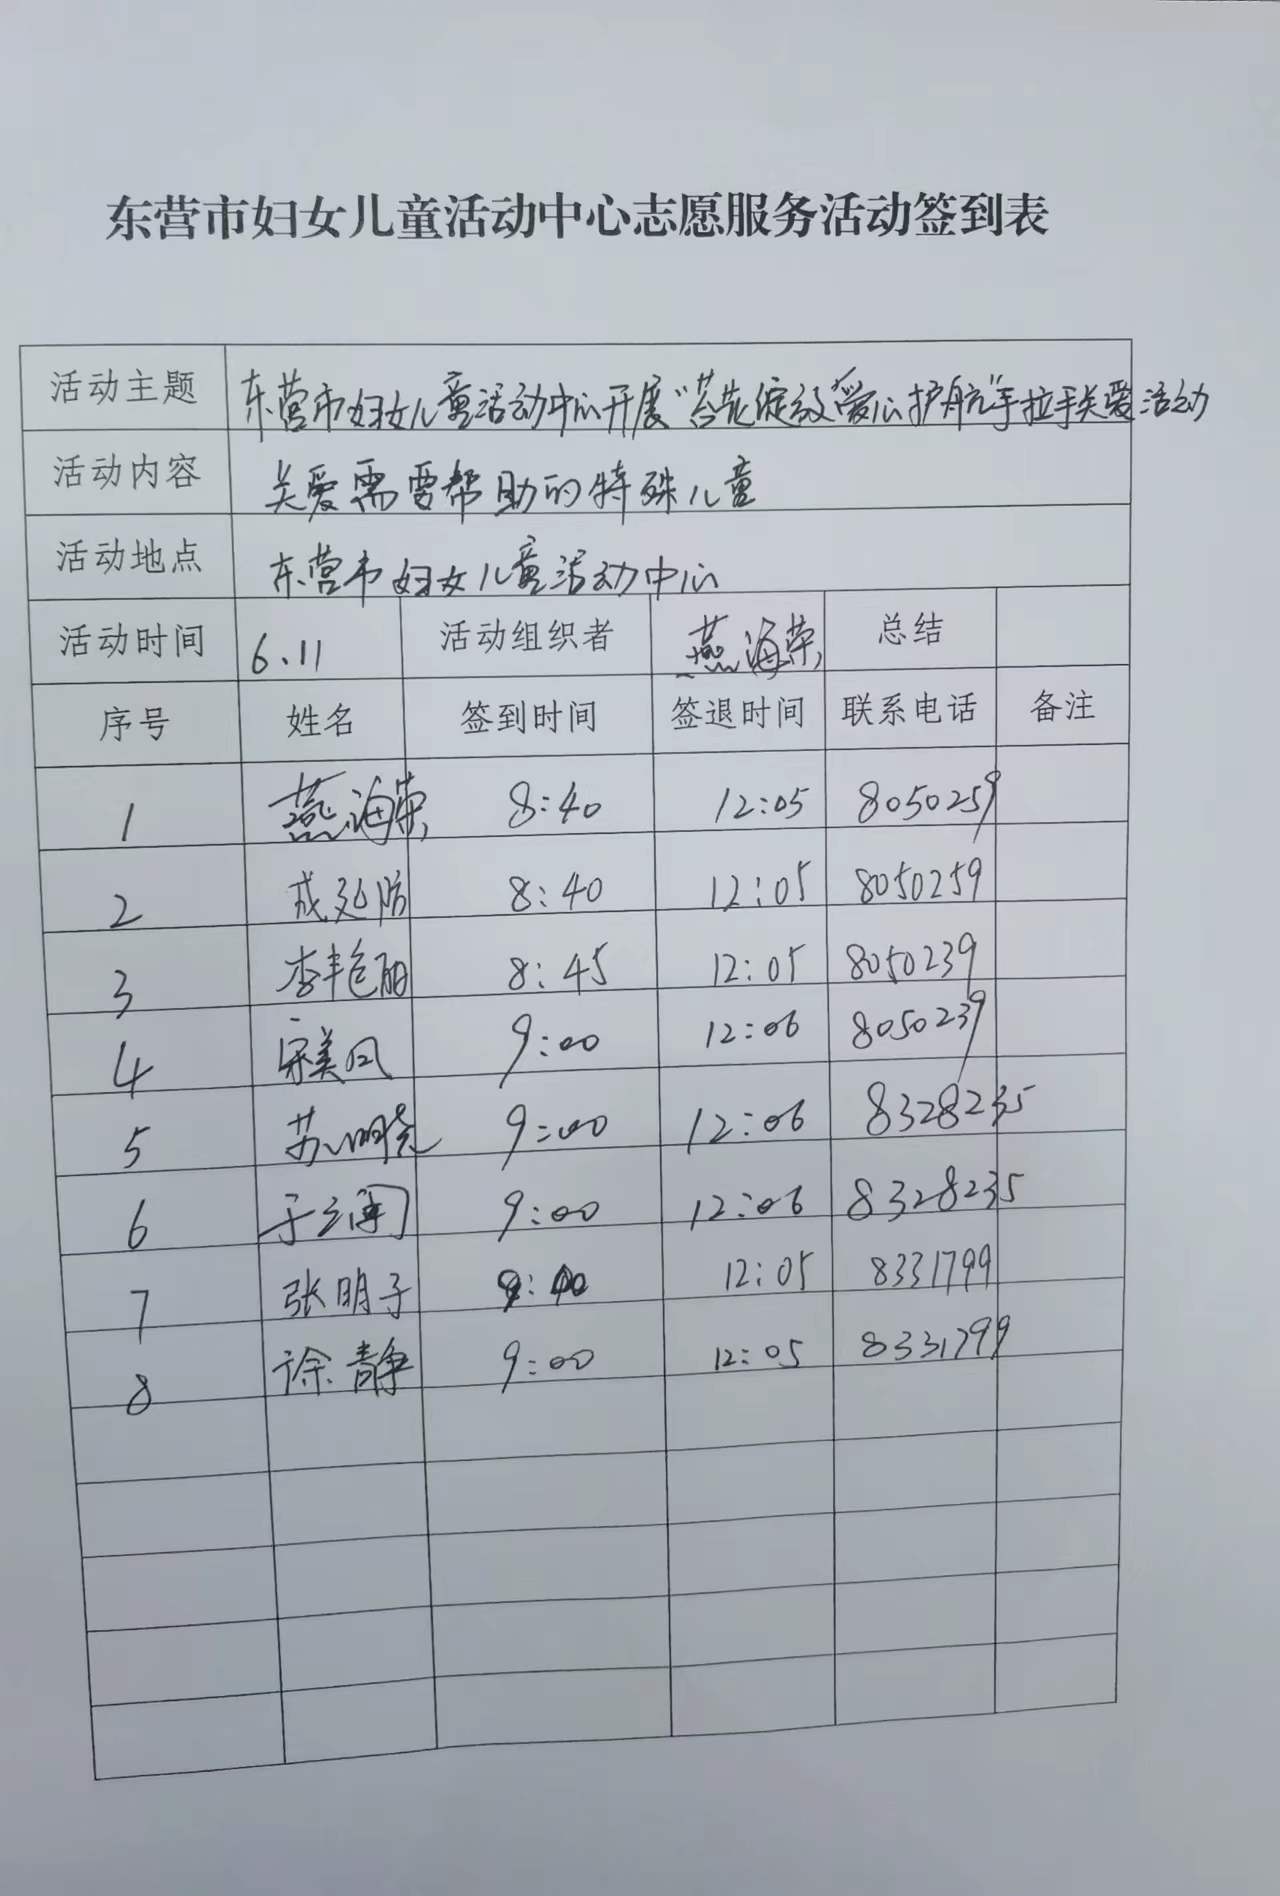 东营市妇女儿童活动中心志愿服务活动签到表
活动主题 东营市妇女儿童活动中心开展"芬芳绽放"爱心护航"手拉手关爱活动
活动内容 关爱需要帮助的特殊儿童
活动地点 东营市妇女儿童活动中心
活动时间 6.11 活动组织者 燕海荣 总结
序号 姓名 签到时间 签退时间 联系电话 备注
1 燕海荣 8:40 12:05 8050259
2 成延防 8:40 12:05 8050259
3 李艳丽 8:45 12:05 8050239
4 宋美风 9:00 12:06 8050239
5 苏晓 9:00 12:06 8328235
6 于 9:00 12:06 8328235
7 张明子 12:05 8331799
8 徐静 9:00 12:05 8331799